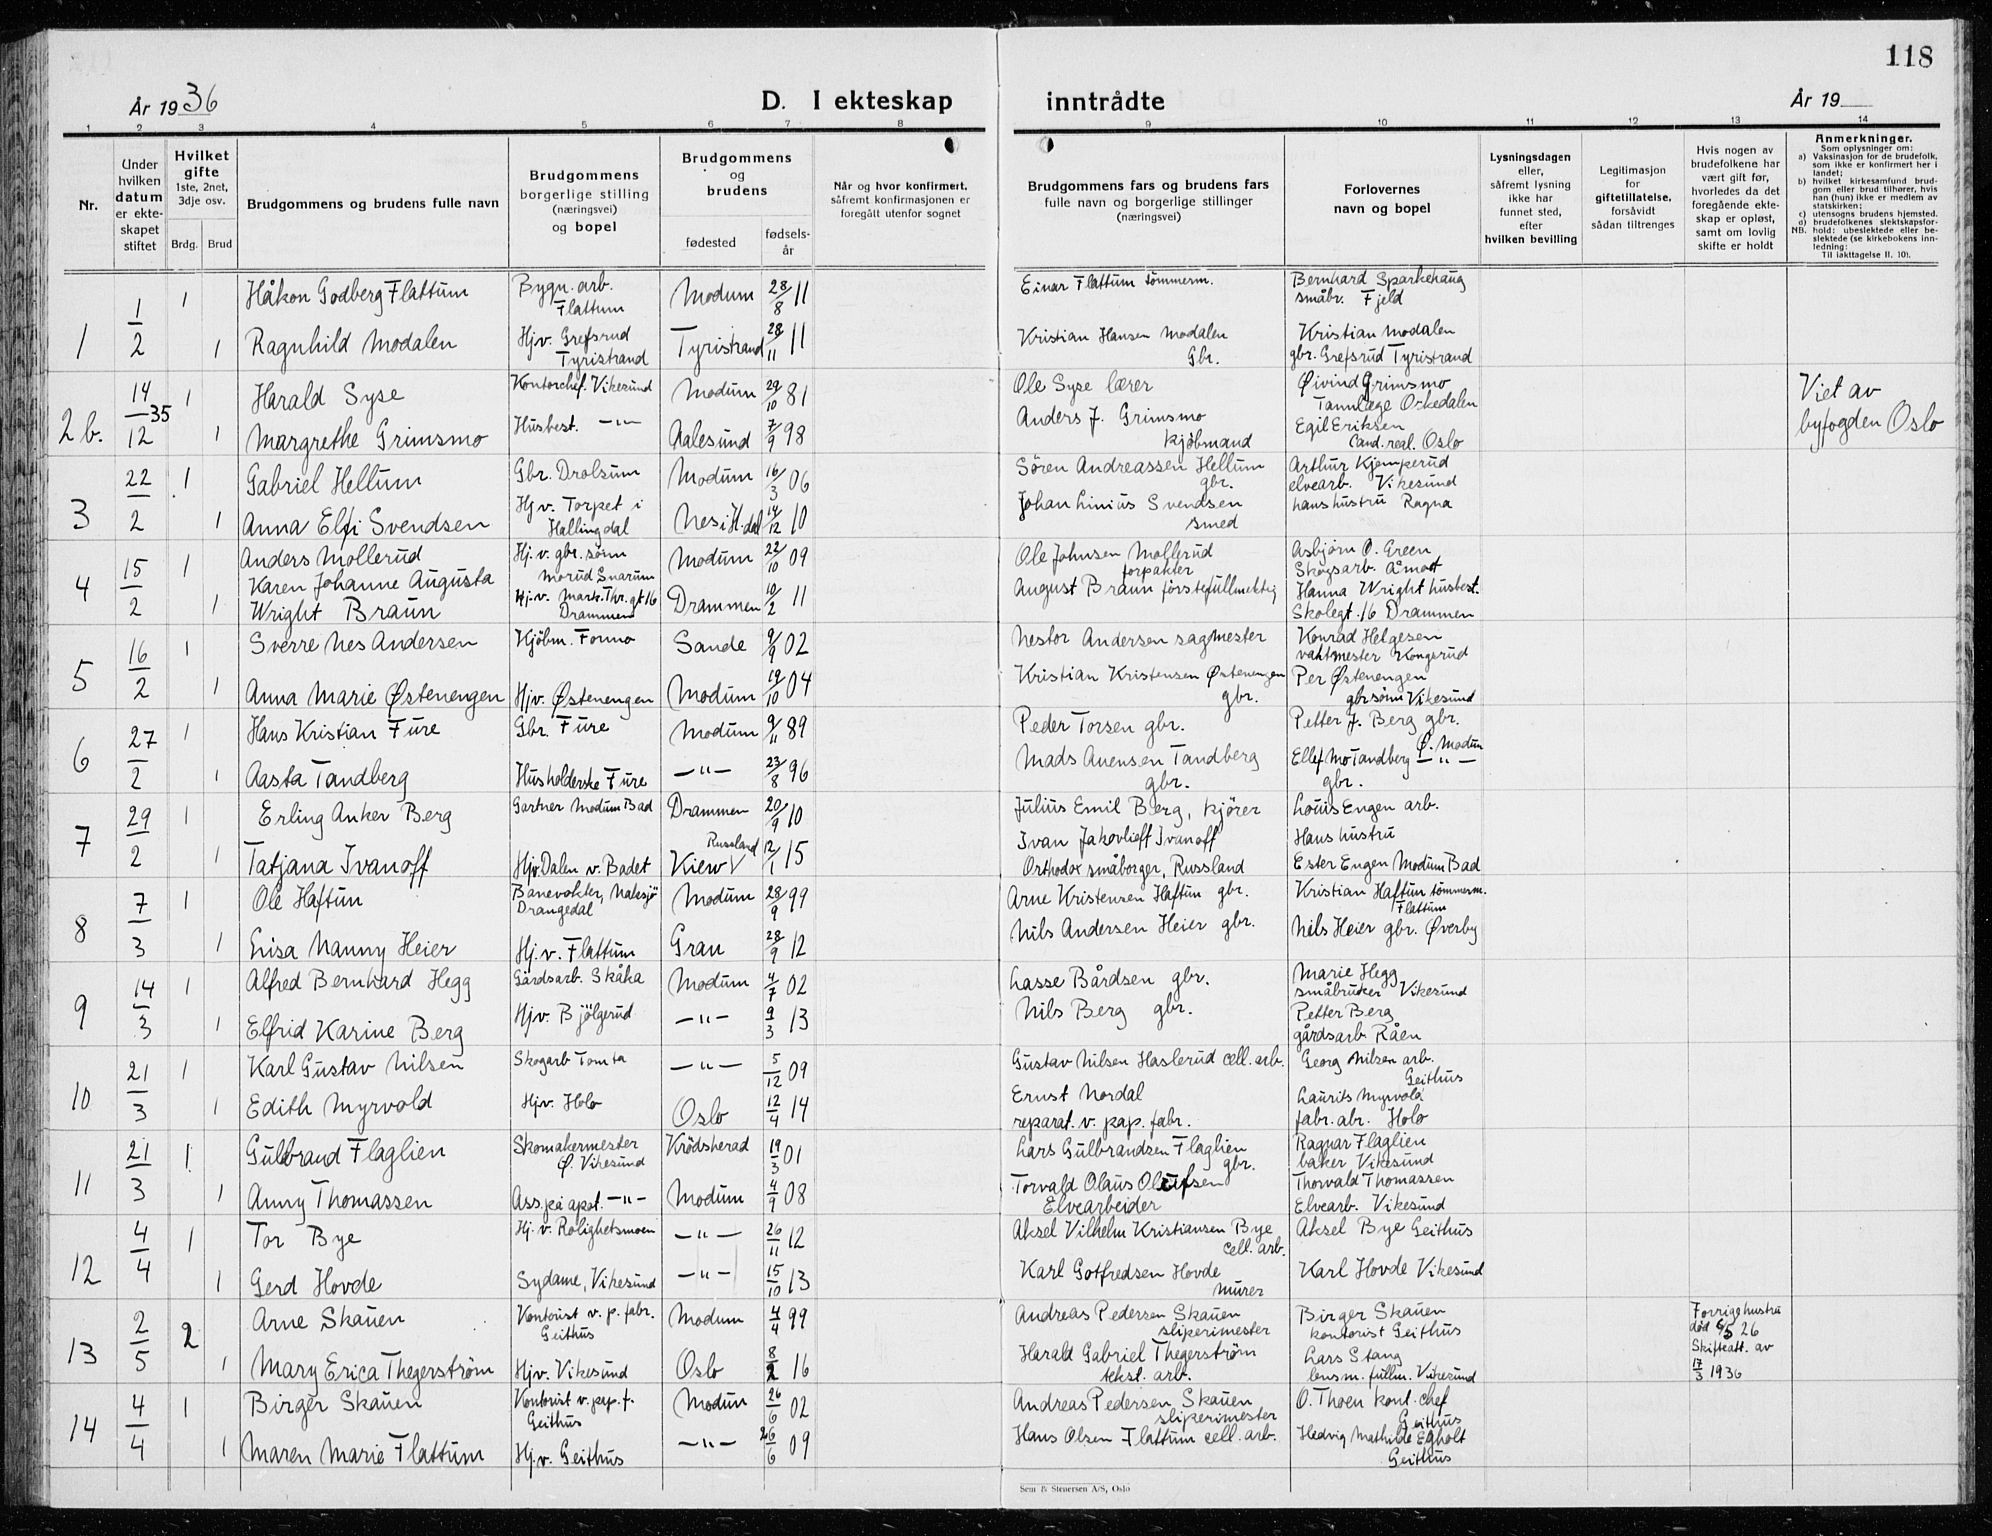 118
År 1936
D. I ekteskap inntrådte
År 19
1 2 3 4 5 6 7 8 9 10 11 12 13 14
Nr.
Under hvilken datum er ekteskapet stiftet
Hvilket gifte 1ste, 2net, 3dje osv.
Brdg. Brud
Brudgommens og brudens fulle navn
Brudgommens borgerlige stilling (næringsvei) og bopel
Brudgommens og brudens
fødested fødselsår
Når og hvor konfirmert, såfremt konfirmasjonen er foregått utenfor sognet
Brudgommens fars og brudens fars fulle navn og borgerlige stillinger (næringsvei)
Forlovernes navn og bopel
Lysningsdagen eller, såfremt lysning ikke har funnet sted, efter hvilken bevilling
Legitimasjon for giftetillatelse, forsåvidt sådan tiltrenges
Hvis nogen av brudefolkene har vært gift før, hvorledes da det foregående ekteskap er opløst, samt om lovlig skifte er holdt
Anmerkninger.
Som oplysninger om:
a) Vaksinasjon for de brudefolk, som ikke er konfirmert her i landet;
b) hvilket kirkesamfund brudgom eller brud tilhører, hvis han (hun) ikke er medlem av statskirken;
c) utensogns brudens hjemsted.
d) brudefolkenes slektskapsforhold: ubeslektede eller beslektede (se kirkebokens innledning:
NB.
Til iakttagelse II. 10).
1 1/2 1 Håkon Godberg Flattum Bygn. arb. Flattum Modum 28/8 11 Einar Flattum tömmerm. Bernhard Sparkehaug småbr. Fjeld
1 Ragnhild Modalen Hjv. Grefsrud Tyristrand Tyristrand 28/11 11 Kristian Hansen Modalen Gbr. Kristian Modalen gbr. Grefsrud Tyristrand
2 b. 14/12 35 1 Harald Syse Kontorchef. Vikesund Modum 29/10 81 Ole Syse lærer Øivind Grimsmo Tannlæge Orkedalen Viet av byfogden Oslo
1 Margrethe Grimsmo Husbest. —"— Aalesund 7/9 98 Anders J. Grimsmo kjöbmand Egil Eriksen Cand. real. Oslo
3 22/2 1 Gabriel Hellum Gbr. Drolsum Modum 16/3 06 Sören Andreassen Hellum gbr. Arthur Kjemperud elvearb. Vikesund
1 Anna Elfi Svendsen Hjv. Torpet i Hallingdal Nes i H.dal 14/12 10 Johan Linius Svendsen smed hans hustru Ragna
4 15/2 1 Anders Mollerud Hj. v. gbr. sönn Morud Snarum Modum 22/10 09 Ole Johnsen Mollerud forpakter Asbjörn O. Green Skogsarb. Åmot
1 Karen Johanne Augusta Wright Braun Hj.v. Mark. Thr. gt 16 Drammen Drammen 10/2 11 August Braun förstefullmektig Hanna Wright husbest. Skolegt. 16 Drammen
5 16/2 1 Sverre Nes Andersen Kjöbm. Fonno Sande 9/9 02 Nestor Andersen sagmester Konrad Helgesen vaktmester Kongsrud
1 Anna Marie Østenengen Hjv. Østenengen Modum 19/10 04 Kristian Kristensen Østenengen gbr. Per Østenengen gbr sönn Vikesund
6 27/2 1 Hans Kristian Fure Gbr. Fure Modum 9/11 89 Peder Torsen gbr. Petter J. Berg gbr. Ø. Modum
1 Aasta Tandberg Husholderske Fure —"— 23/8 96 Mads Auensen Tandberg gbr. Ellef Mo Tandberg —"— gbr.
7 29/2 1 Erling Anker Berg Gartner Modum Bad Drammen 20/9 10 Julius Emil Berg, kjörer Louis Engen arb.
1 Tatjana Ivanoff Hjv. Dalen v. Badet Kiew Russland 12/1 15 Ivan Jakovlieff Ivanoff Orthodox småborger, Russland Hans hustru Ester Engen Modum Bad
8 7/3 1 Ole Haftun Banevokter, Nakksjö Drangedal Modum 28/9 99 Arne Kristensen Haftun gbr. Kristian Haftun tömmerm. Flattum
1 Lisa Nanny Heier Hj. v. Flattum Gran 28/9 12 Nils Andersen Heier gbr. Nils Heier gbr. Øverby
9 14/3 1 Alfred Bernhard Hegg Gårdsarb. Skåka Modum 4/7 02 Lasse Bårdsen gbr. Marie Hegg småbruker Vikesund
1 Elfrid Karine Berg Hjv. Bjölgerud —"— 9/3 13 Nils Berg gbr. Petter Berg gårdsarb. Råen
10 21/3 1 Karl Gustav Nilsen Skogarb Tomta —"— 5/12 09 Gustav Nilsen Haslerud cell. arb. Georg Nilsen arb. Geithus
1 Edith Myrvold Hjv. Holo Oslo 12/4 14 Ernst Nordal reparat. v. pap. fabr. Laurits Myrvold fabr. abr. Holo
11 21/3 1 Gulbrand Flaglien Skomakermester Ø. Vikesund Krödsherad 19/3 01 Lars Gulbrandsen Flaglien gbr. Ragnar Flaglien baker Vikesund
1 Anny Thomassen Ass. på apot. —"— Modum 4/9 08 Torvald Olaus Olufsen Elvearbeider Thorvald Thomassen Elvearb. Vikesund
12 4/4 1 Tor Bye Hj. v. Rolighetsmoen —"— 26/11 12 Aksel Vilhelm Kristiansen Bye cell. arb. Aksel Bye Geithus
1 Gerd Hovde Sydame, Vikesund —"— 15/10 13 Karl Gotfredsen Hovde murer Karl Hovde Vikesund
13 2/5 2 Arne Skauen Kontorist v. p. fabr. Geithus Modum 4/4 99 Andreas Pedersen Skauen sliperimester Birger Skauen kontorist Geithus Forrige hustru död 6/5 26 Skifteatt. av 17/3 1936
1 Mary Erica Thegerström Hjv. Vikesund Oslo 8/2 16 Harald Gabriel Thegerström tekst. arb. Lars Stang lensm. fullm. Vikesund
14 4/4 1 Birger Skauen Kontorist v. pap. f. Geithus Modum 26/6 02 Andreas Pedersen Skauen sliperimester O. Thoen kont. chef Geithus
1 Maren Marie Flattum Hj. v. Geithus —"— 26/6 09 Hans Olsen Flattum cell. arb. Hedvig Mathilde Egholt Geithus
Sem & Stenersen A/S, Oslo